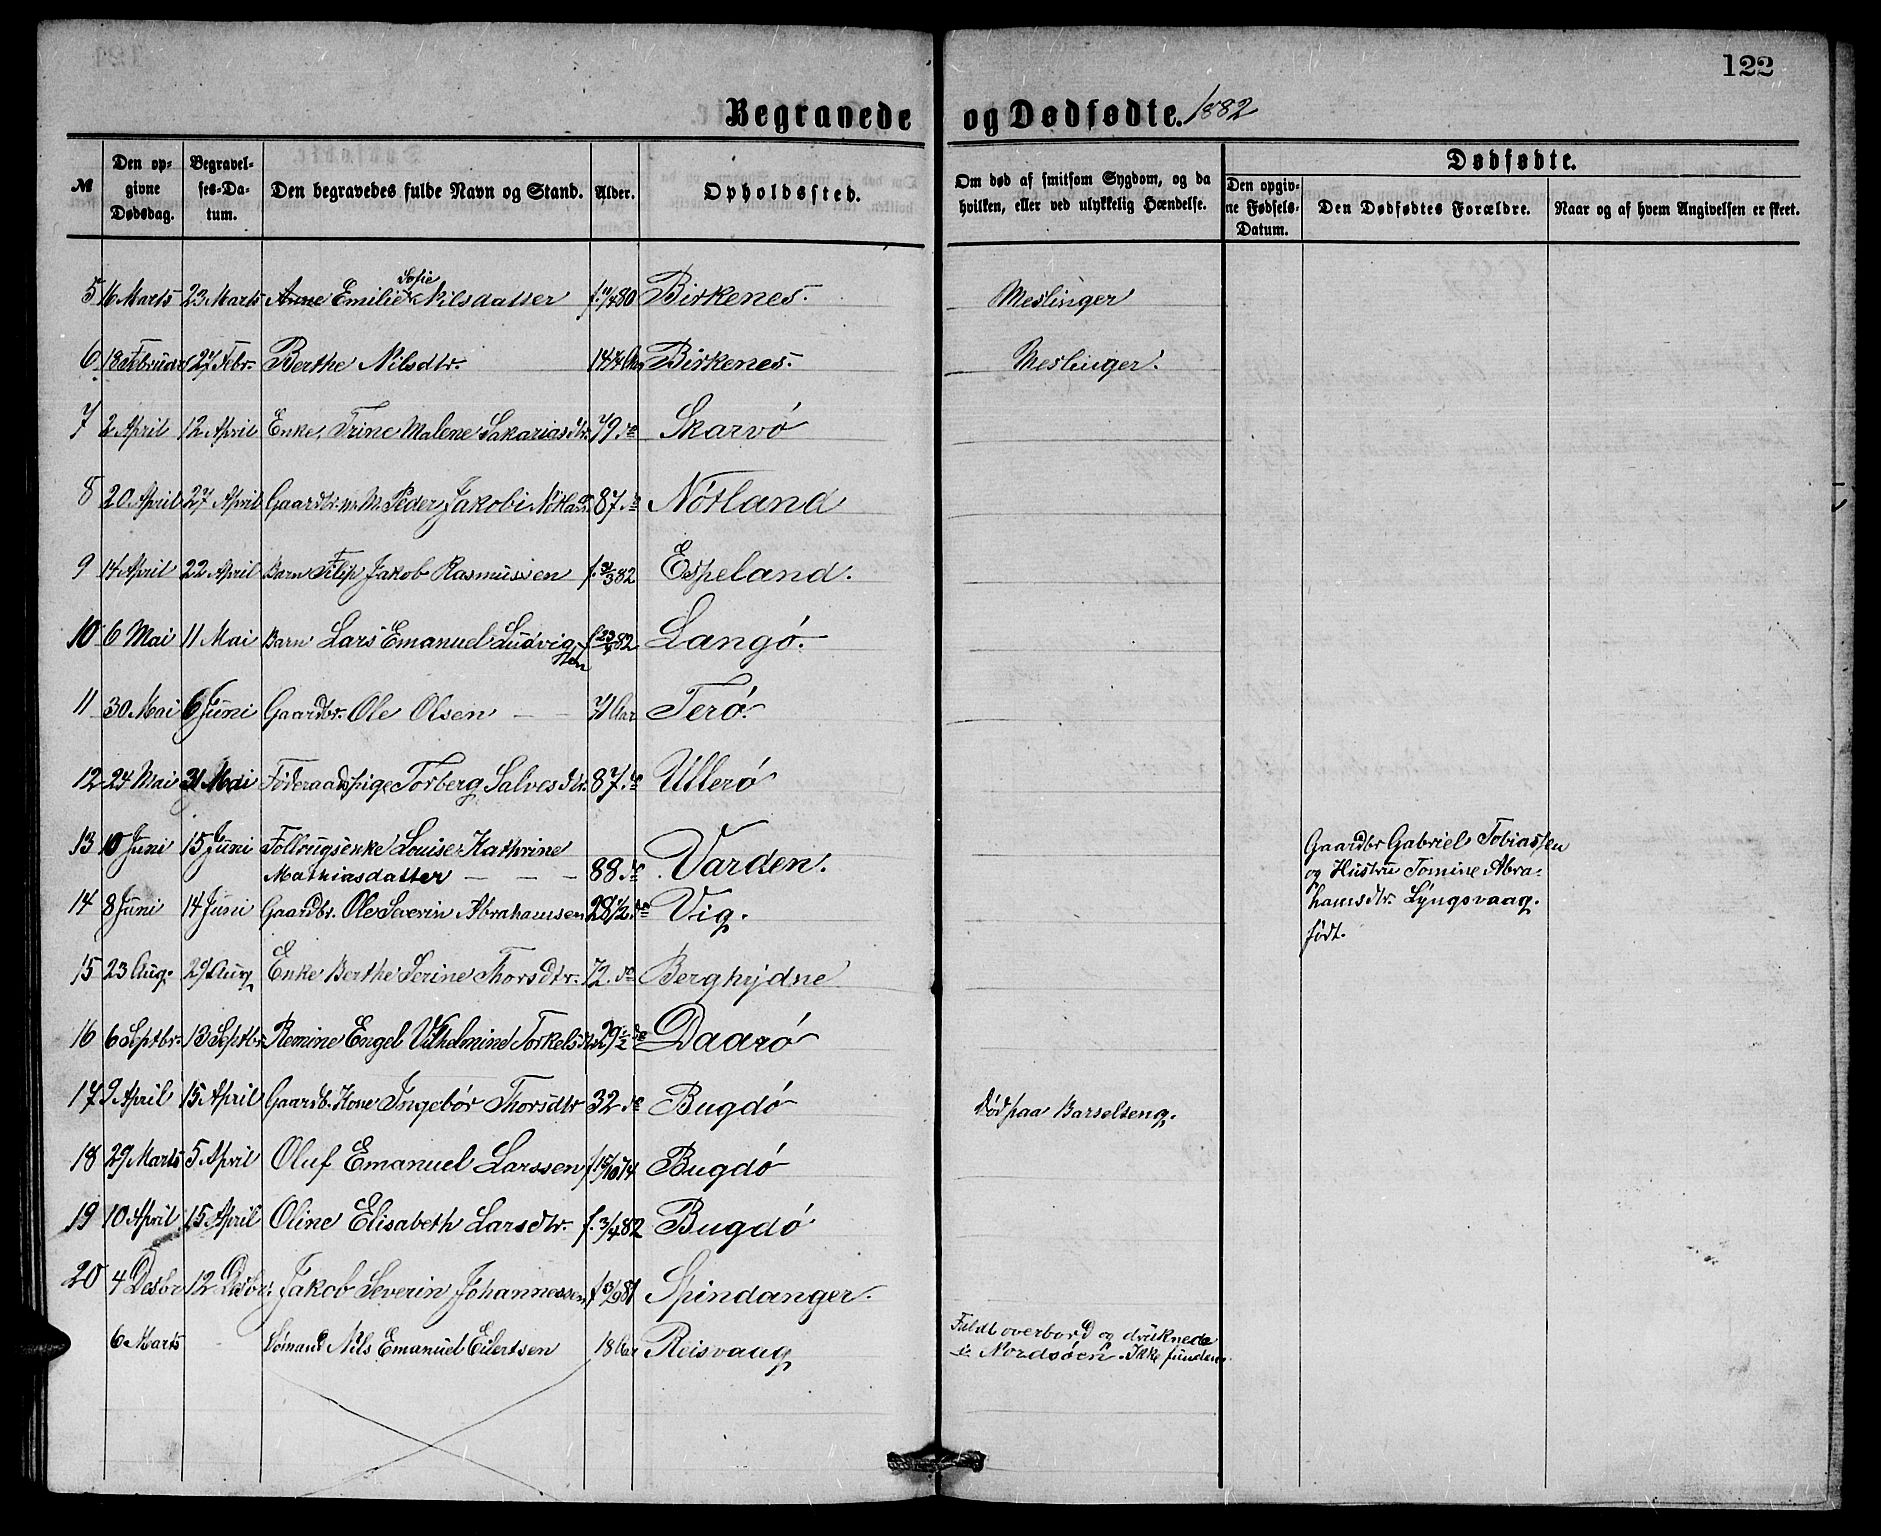 122
Begravede og Dødfødte. 1882
№
Den opgivne Dødsdag.
Begravelses-Datum.
Den begravedes fulde Navn og Stand.
Alder.
Opholdssted.
Om død af smitsom Sygdom, og da hvilken, eller ved ulykkelig Hændelse.
Dødfødte.
Den opgivne Fødsels-Datum.
Den Dødfødtes Forældre.
Naar og af hvem Angivelsen er skeet.
5 16 Marts 23 Marts Anne Emilie Sofie Nilsdatter Birkenes. Meslinger
6 18 Februar 27 Febr. Berthe Nilsdtr. Birkenes. Meslinger.
7 2 April 12 April Enke, Trine Malene Sakariasdtr. 79. do Skarvö
8 20 April 27 April Peder Jakobi 87. do Nötland
9 14 April 22 April Barn Filip Jakob Rasmussen f. 31/3 82 Espeland.
10 6 Mai 11 Mai Barn Lars Emanuel Ludvigsen f. 23/4 82 Langö.
11 30 Mai 6 Juni Gaardbr. Ole Olsen — — 71 Aar Terö.
12 24 Mai 31 Mai Föderaadspige Torberg Salvesdtr. 87. do Ullerö
13 10 Juni 15 Juni Louise Kathrine
Mathiasdatter — — — 88. do Varden.
Gaardbr Gabriel Tobiassen
og Hustru Tomine Abra-
hamsdtr. Lyngsvaag.
födt.
14 8 Juni 14 Juni Gaardbr. Ole Severin Abrahamsen 28 1/2 do Vig.
15 23 Aug. 29 Aug. Enke Berthe Serine Thorsdtr. 72. do Berghydne
16 6 Septbr. 13 Septbr. Remine Engel Vilhelmine Torkelsdtr. 29 1/2 do Daarö
17 9 April 15 April Gaardb. Kone Ingebör Thorsdtr 32 do Bugdö Död paa Barselseng.
18 29 Marts 5 April Oluf Emanuel Larssen f. 15/10 74 Bugdö
19 10 April 15 April Oline Elisabeth Larsdtr. f. 3/4 82 Bugdö
20 4 Desbr 12 Desbr. Jakob Severin Johannessen Spindanger.
6 Marts Sömand Nils Emanuel Eilertsen 18 Aar Reisvaag
Faldt overbord og druknede
i Nordsöen. Ikke funden.